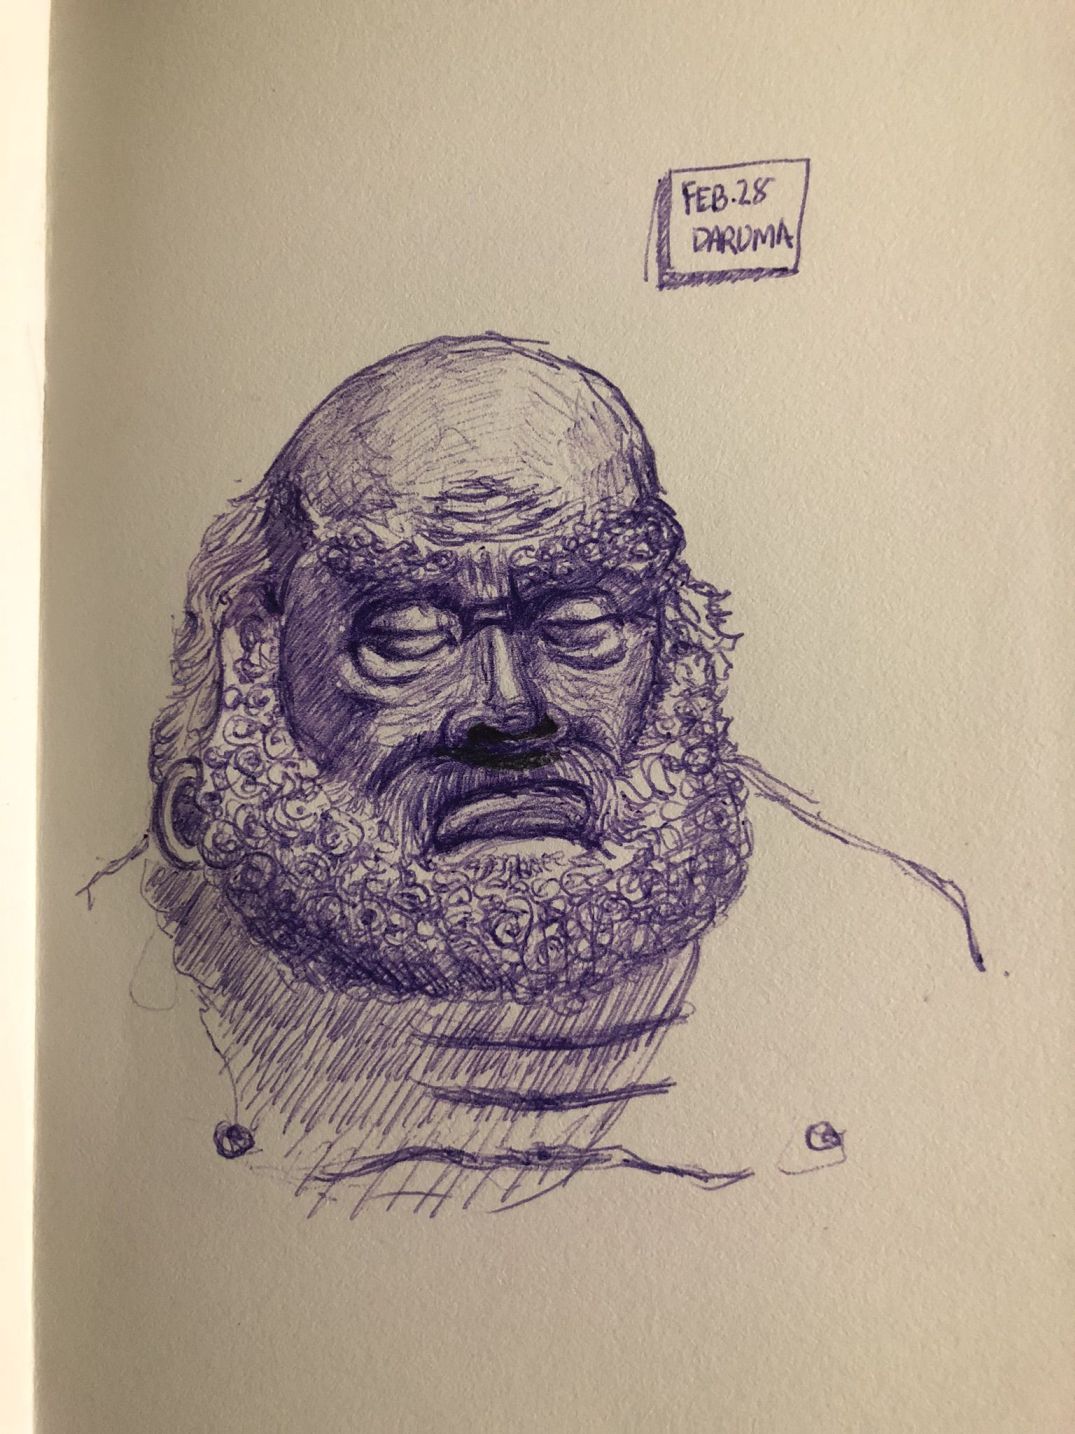 FEB.28
DARUMA